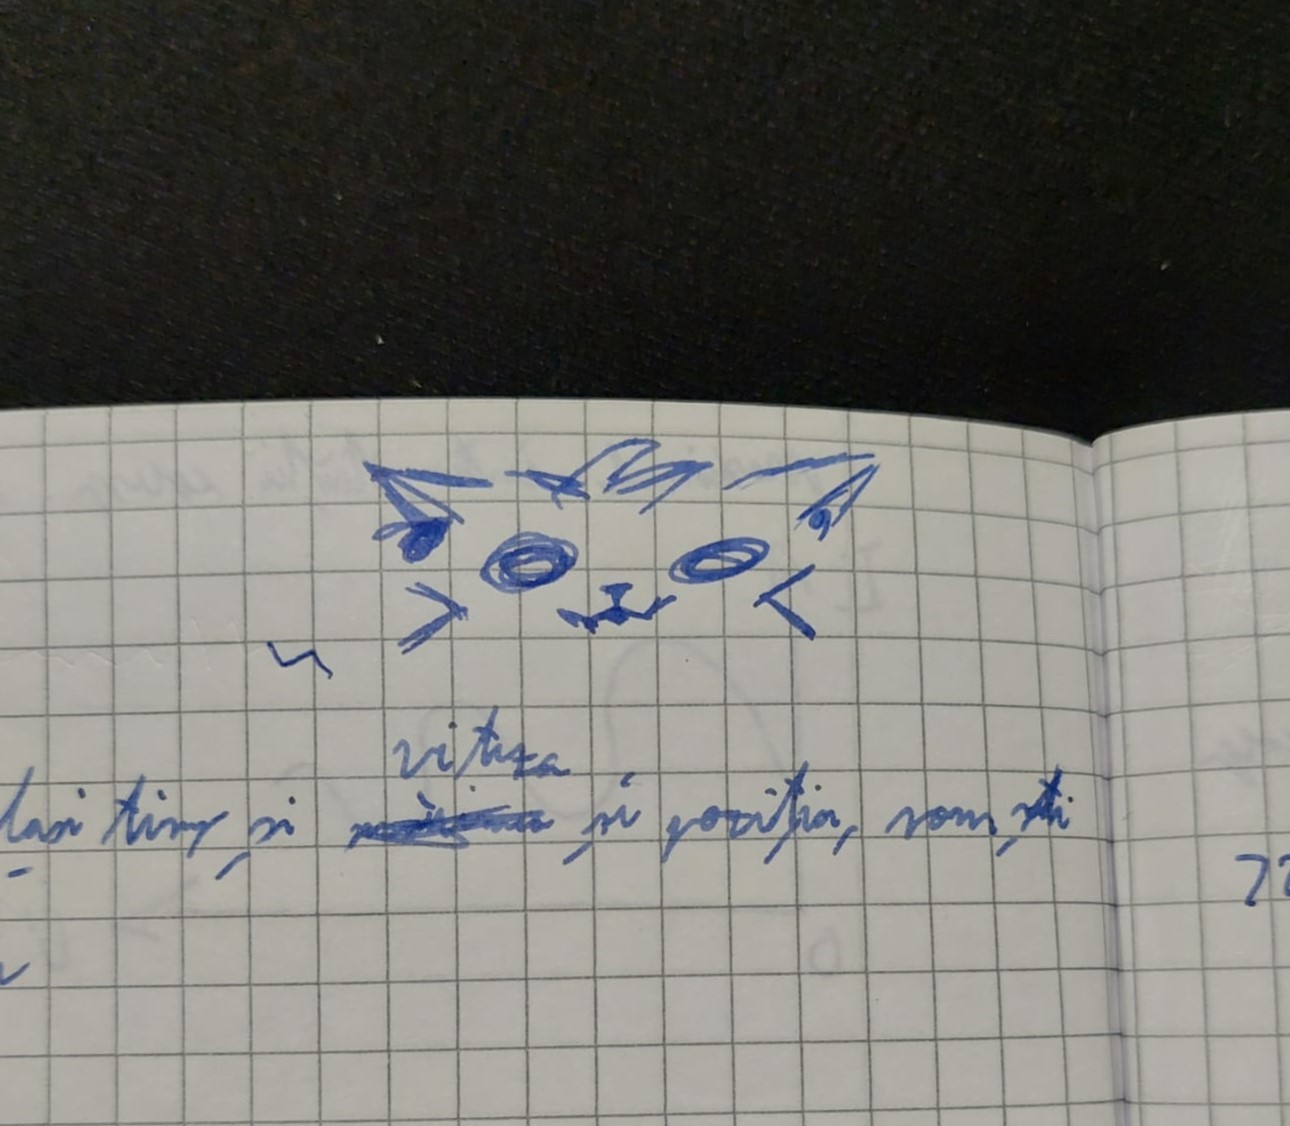 viteza
lasi timp și și poziția, vom ști